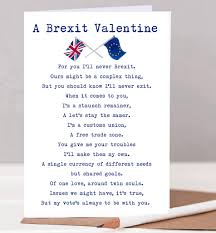 A Brexit Valentine
For you I'll never Brexit.
Ours might be a complex thing,
But you should know I'll never exit.
When it comes to you,
I'm a staunch remainer,
A let's stay the samer.
I'm a customs union,
A free trade zone.
You give me your troubles
I'll make them my own.
A single currency of different needs
but shared goals.
Of one love, around twin souls.
Issues we might have, it's true,
But my vote's always to be with you.